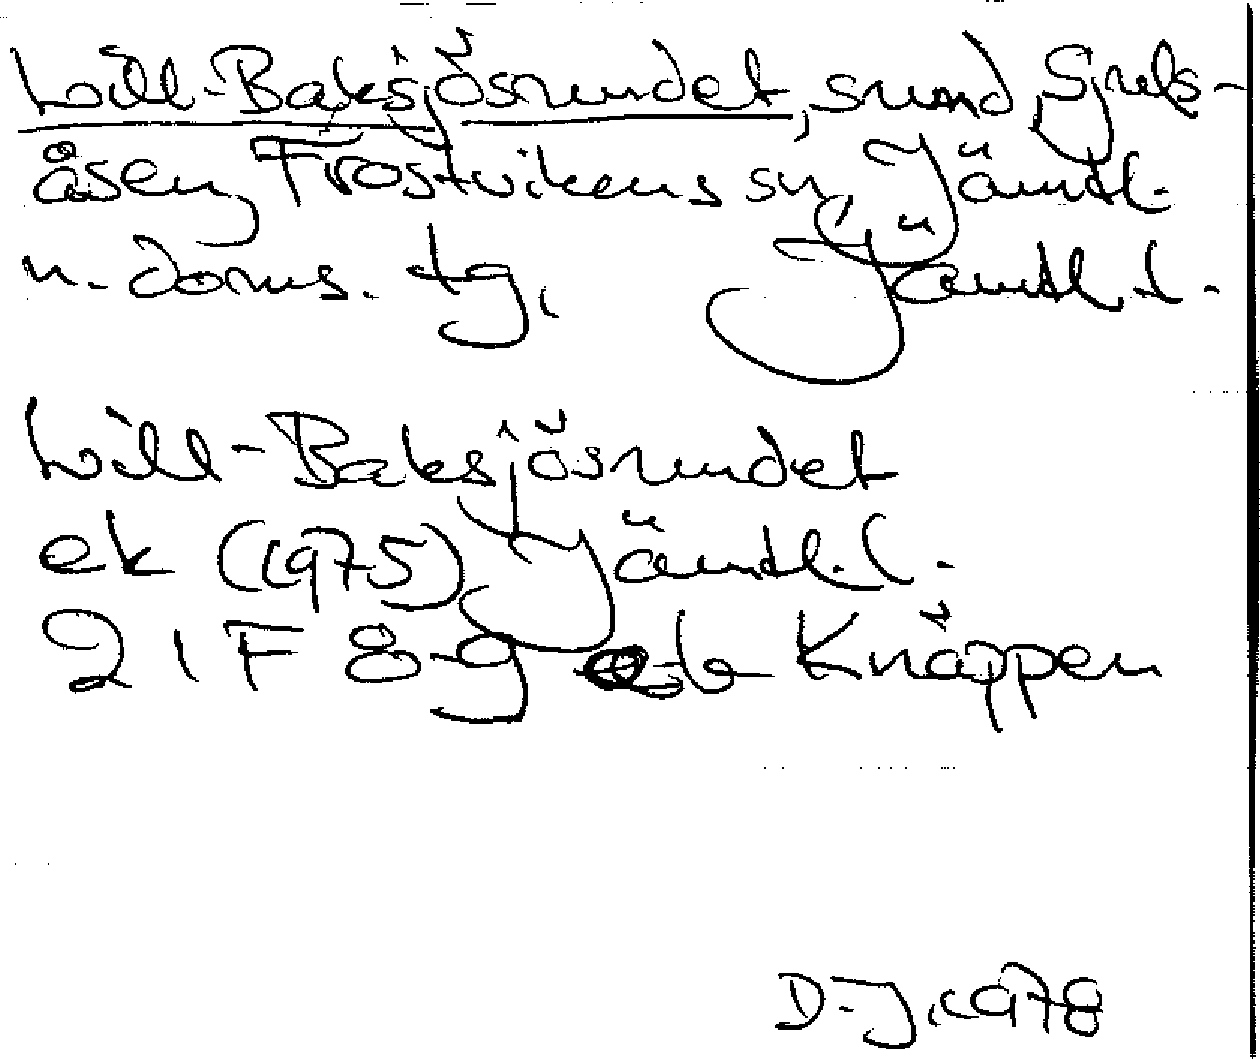 Lill-Baksjösundet, sund, Sjuls-
åsen, Frostvikens sn, Jämtl.
n. doms. tg, Jämtl. l.
Lill-Baksjösundet
ek (1975) Jämtl. l.
21F 8-9 a-b Knäppen
D-J. 1978